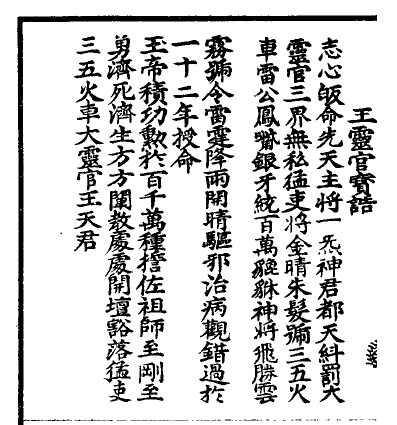 王靈官寶誥
志心皈命先天主將一炁神君都天糾罰大
靈官三界無私猛吏將金睛朱髮號三五火
車雷公鳳嘴銀牙統百萬貔貅神將飛騰雲
霧號令雷霆降雨開晴驅邪治病觀錯過於
一十二年授命
玉帝積功勲於百千萬種誓佐祖師至剛至
勇濟死濟生方方闡教處處開壇豁落猛吏
三五火車大靈官王天君